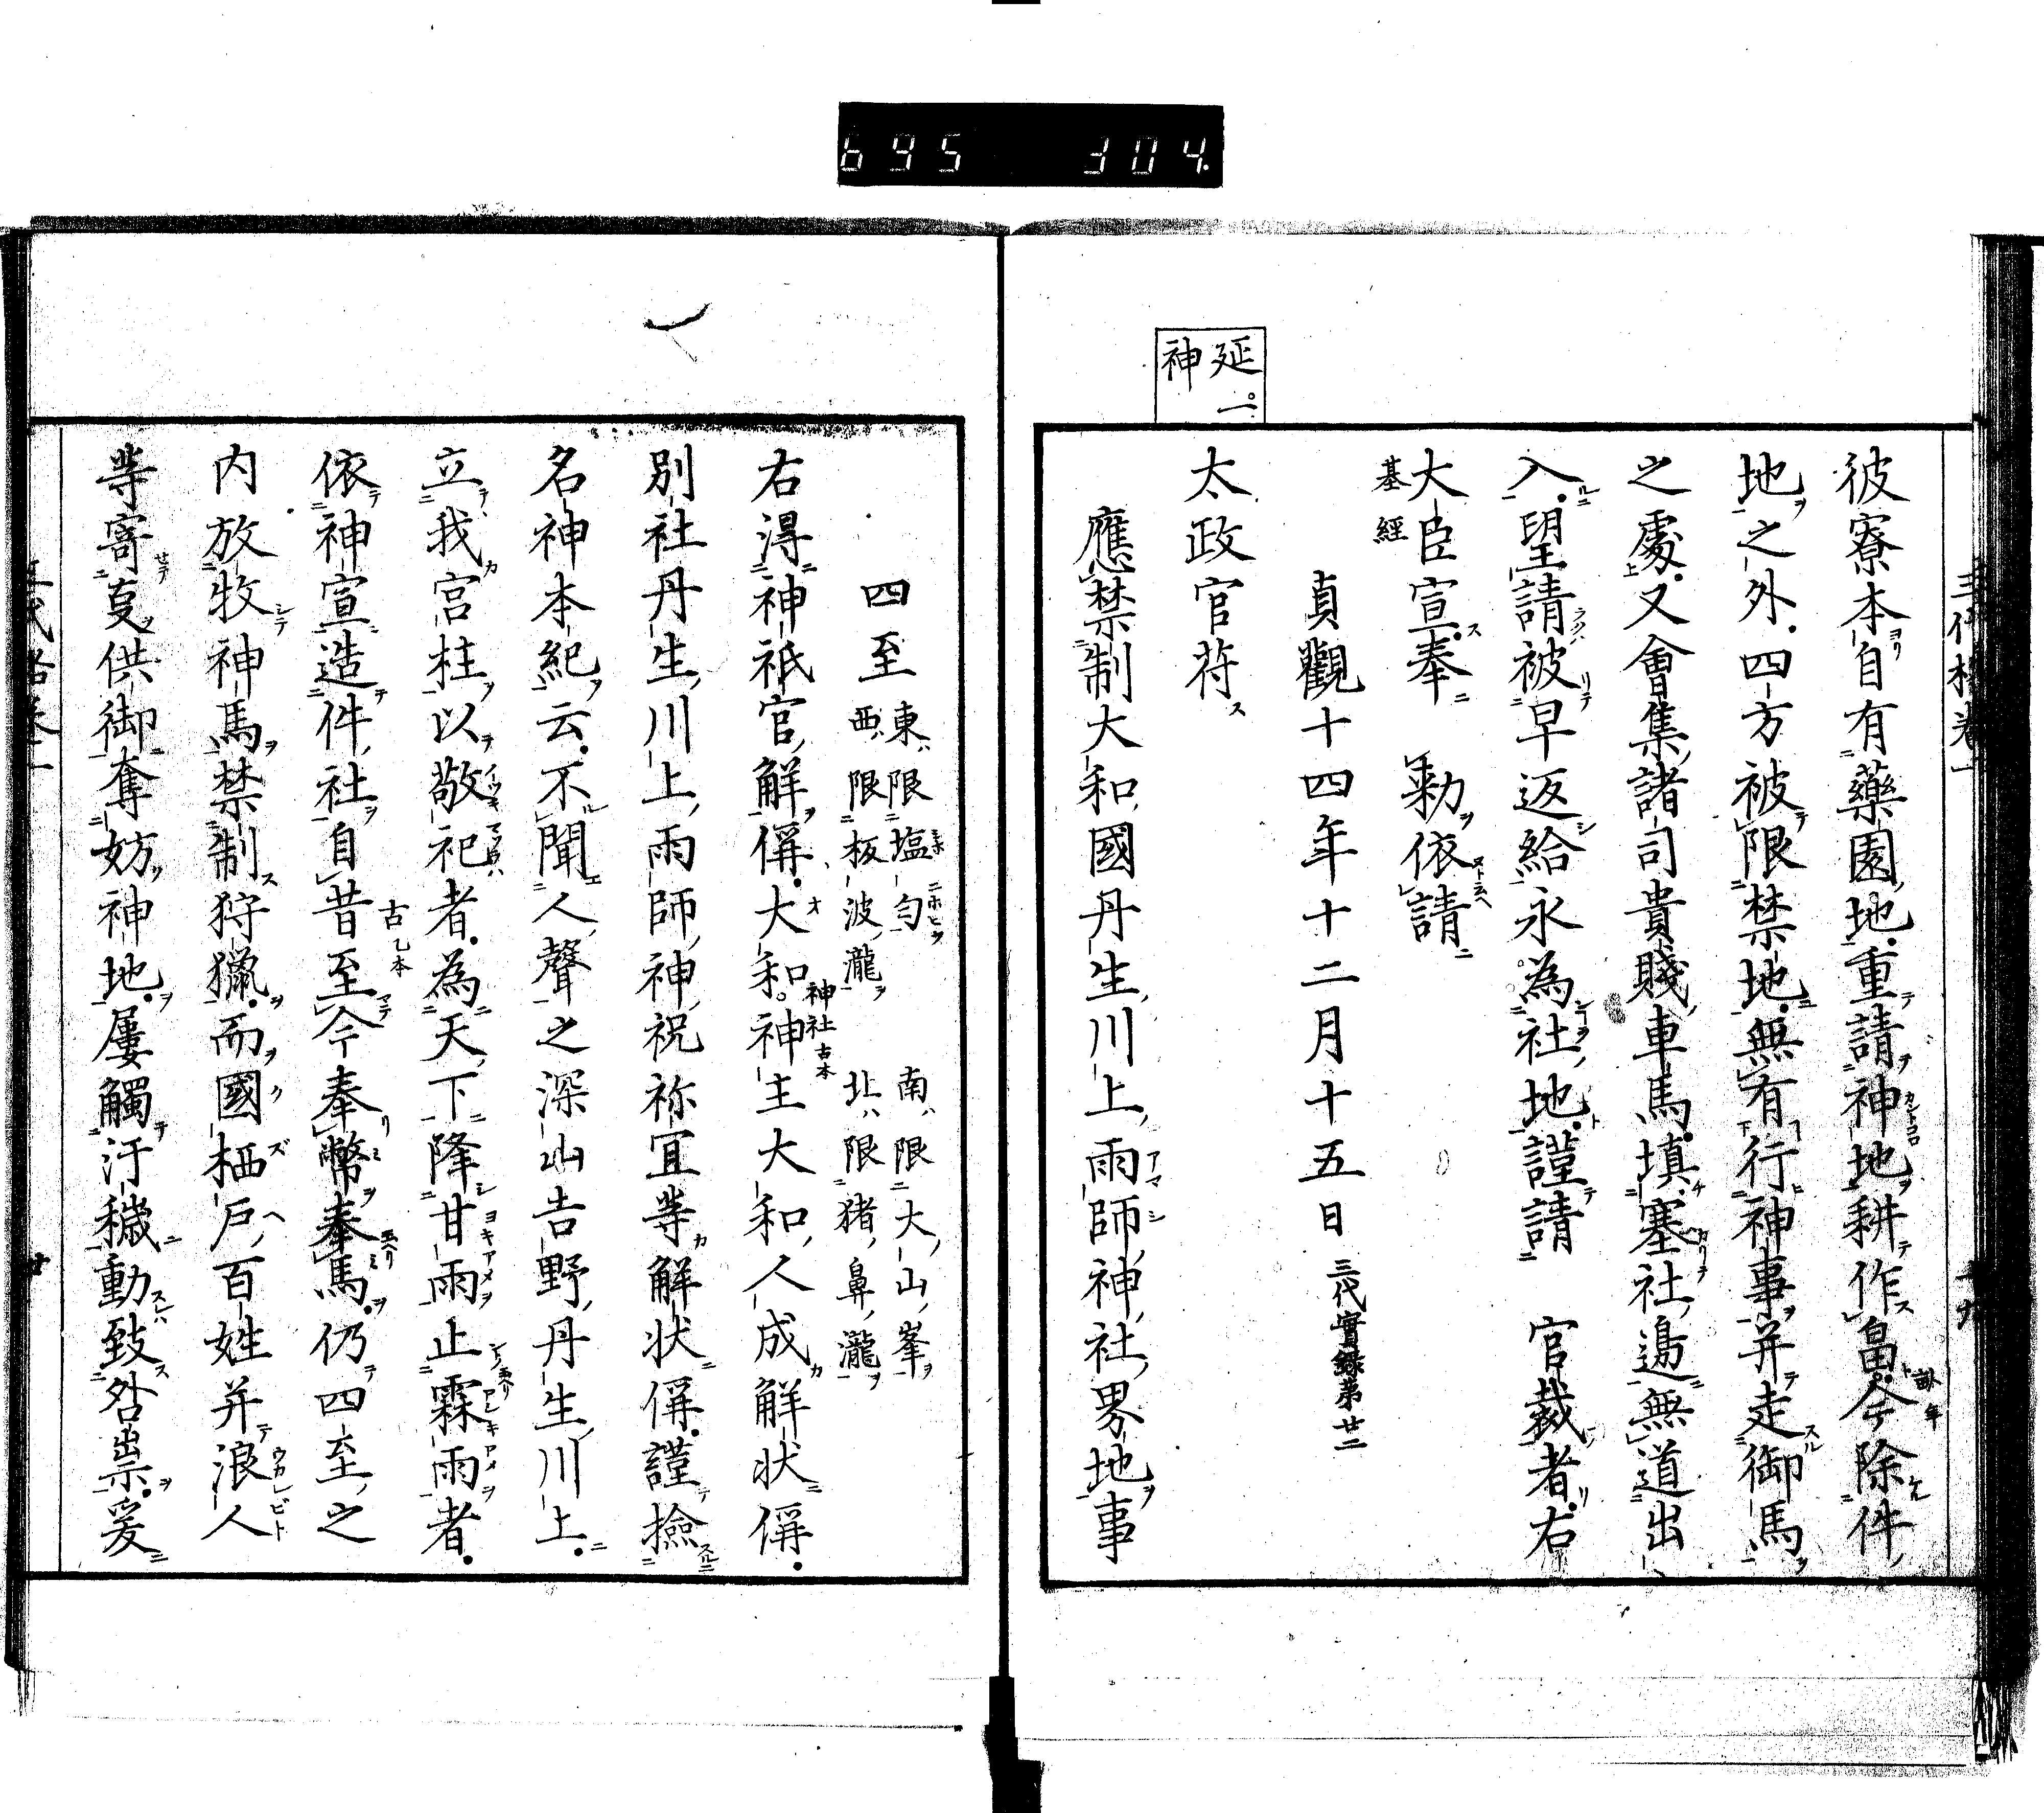 695 304.
延一
神
彼寮本自有藥園地重請神地耕作畠今除件
地之外四方被限禁地無有行神事并走御馬
之處又會集諸司貴賤車馬填塞社邊無道出
入望請被早返給永為社地謹請　官裁者右
大臣宣奉　勅依請
基經
貞觀十四年十二月十五日 三代實録第廿二
太政官符
應禁制大和國丹生川上雨師神社界地事
四至 東限塩匂 南限大山峯
西限板波瀧 北限猪鼻瀧
右得神祇官解偁大和神主大和人成解状偁
神社古本
別社丹生川上雨師神祝祢宜等解状偁謹撿
名神本紀云不聞人聲之深山吉野丹生川上
立我宮柱以敬祀者為天下降甘雨止霖雨者
依神宣造件社自昔至今奉幣奉馬仍四至之
古乙本
内放牧神馬禁制狩獵而國栖戸百姓并浪人
等寄㕝供御奪妨神地屢觸汙穢動致咎祟爰